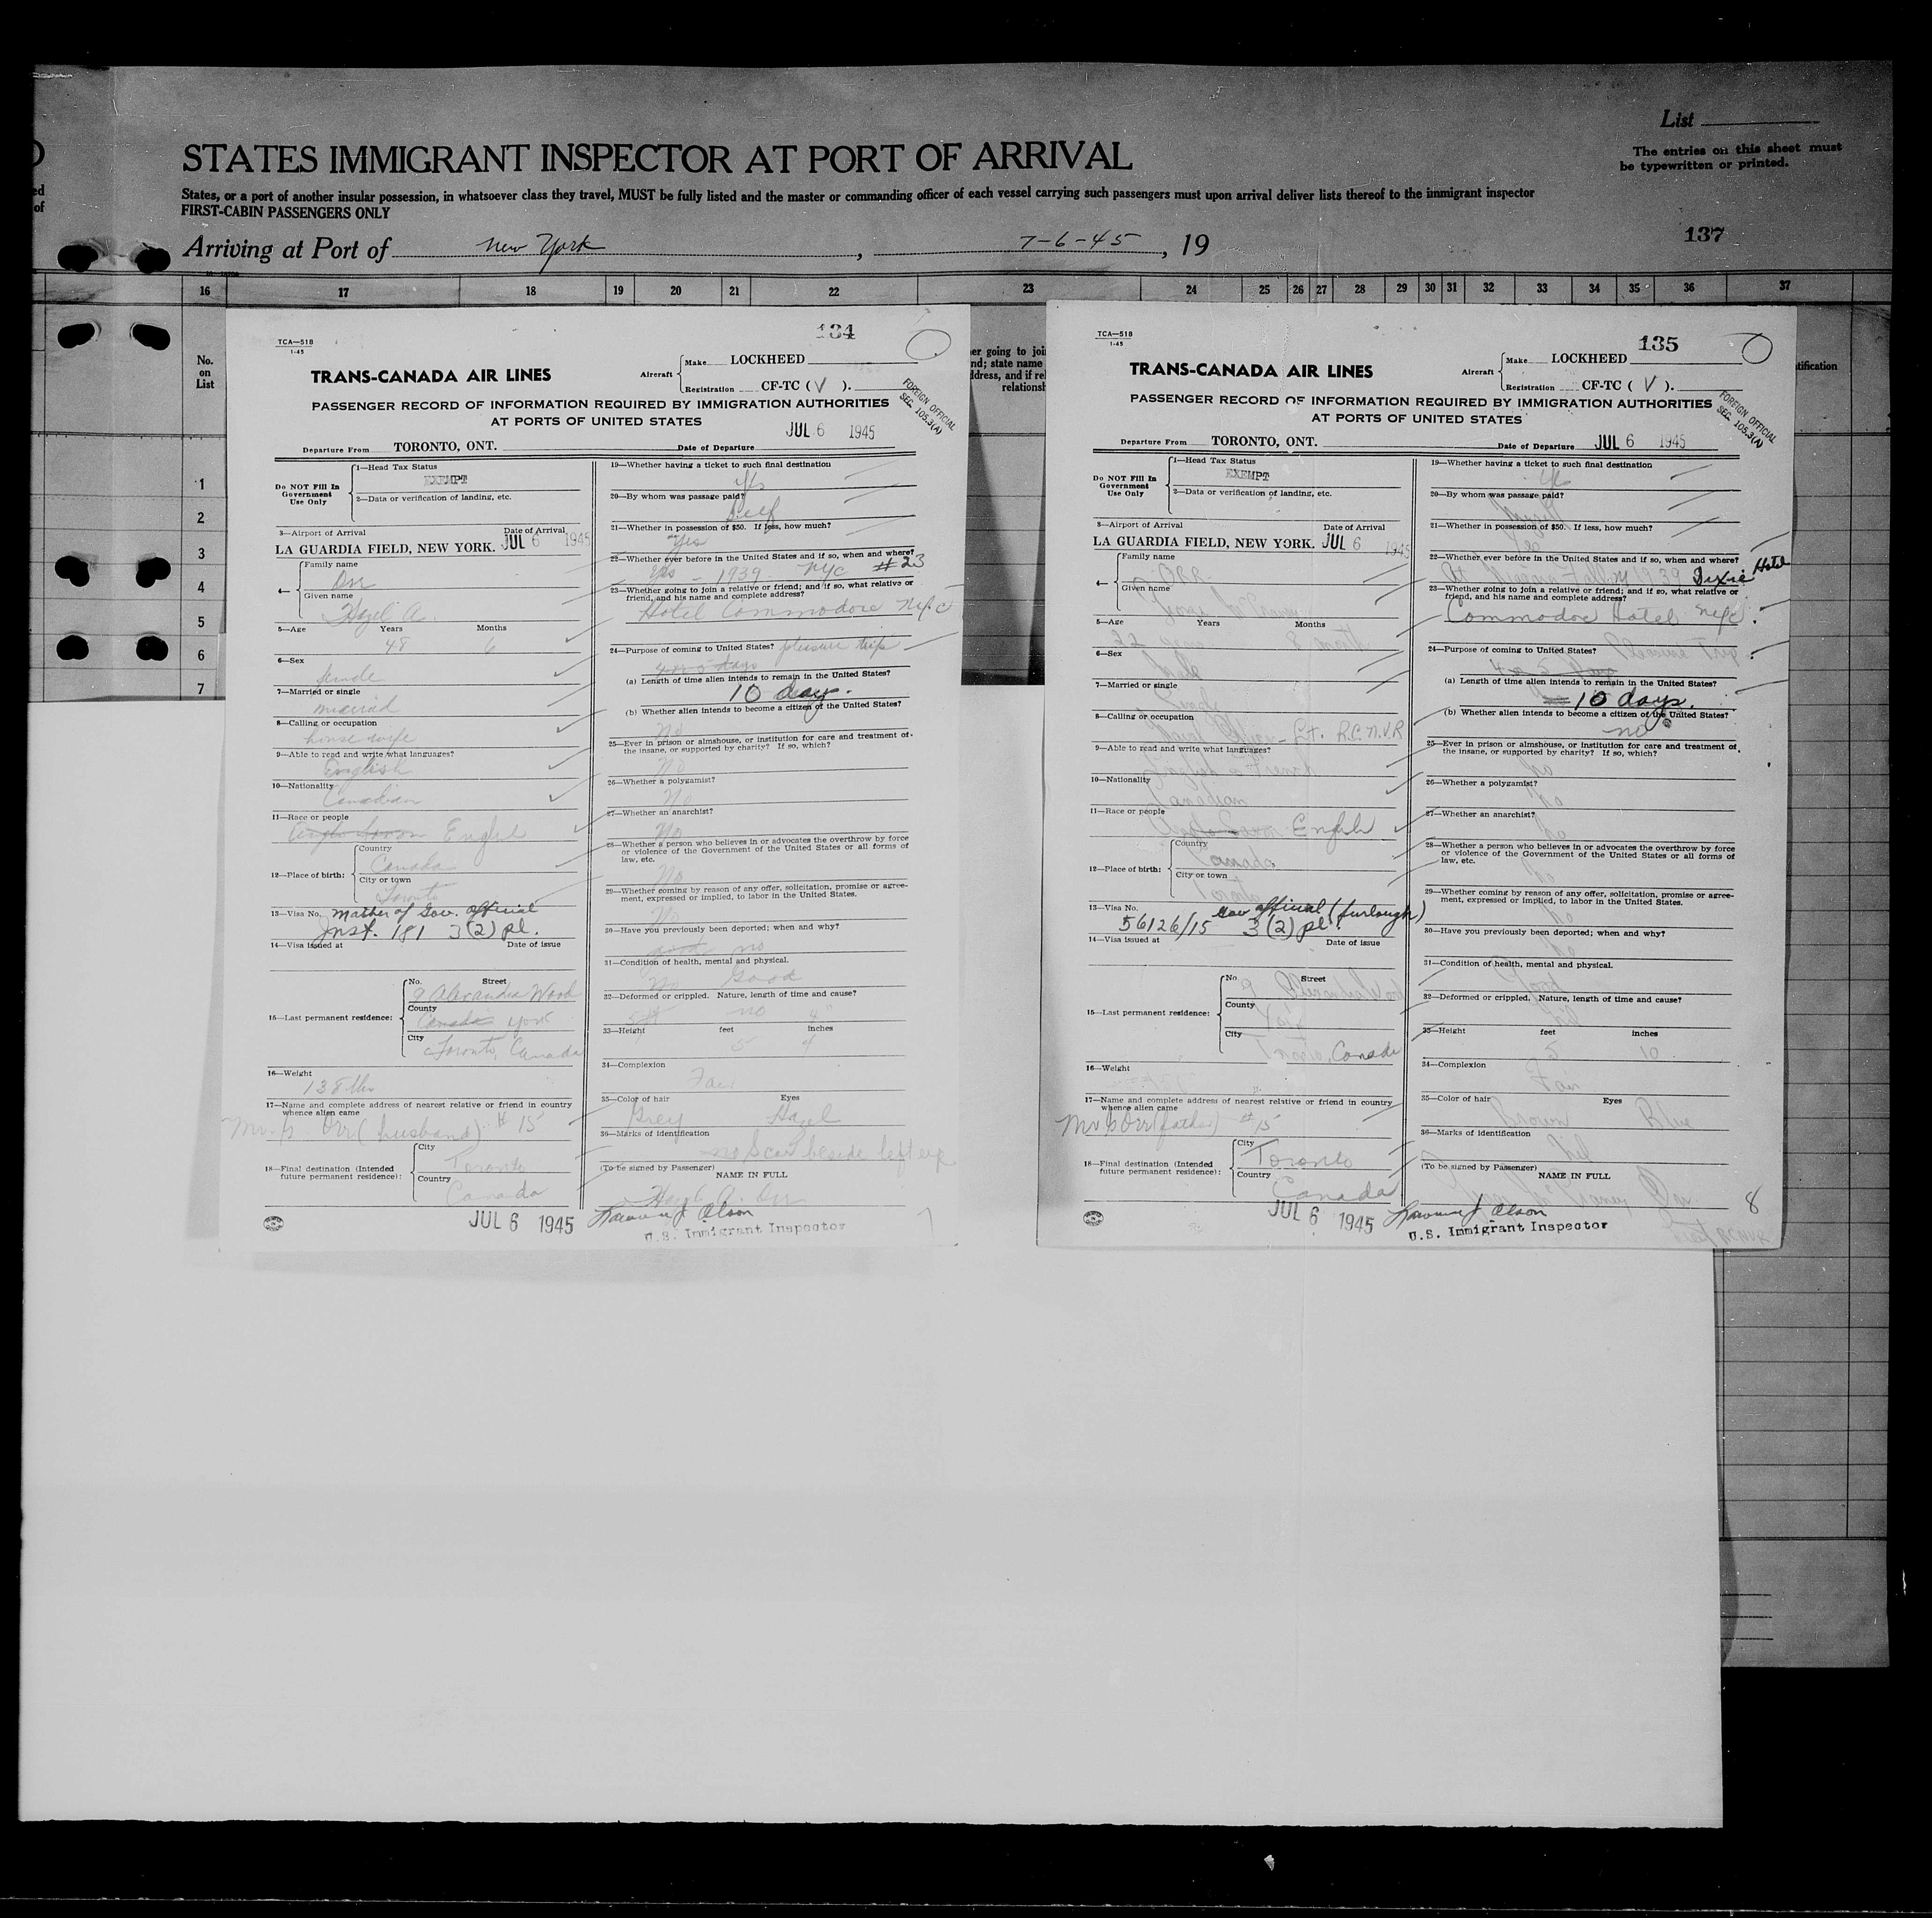 List
The entries on this sheet must
be typewritten or printed.
STATES IMMIGRANT INSPECTOR AT PORT OF ARRIVAL
States, or a port of another insular possession, in whatsoever class they travel, MUST be fully listed and the master or commanding officer of each vessel carrying such passengers must upon arrival deliver lists thereof to the immigrant inspector
FIRST-CABIN PASSENGERS ONLY
137
Arriving at Port of New York, 7-6-45, 19
16 17 18 19 20 21 22 23 24 25 26 27 28 29 30 31 32 33 34 35 36 37
No.
on
List
1
2
3
4
5
6
7
TCA—518
1-45
134
Aircraft Make LOCKHEED
Registration CF-TC ( V ).
TRANS-CANADA AIR LINES
FOREIGN OFFICIAL
SEC. 105.3(A)
PASSENGER RECORD OF INFORMATION REQUIRED BY IMMIGRATION AUTHORITIES
AT PORTS OF UNITED STATES
Departure From TORONTO, ONT. Date of Departure JUL 6 1945
Do NOT Fill In
Government
Use Only
1—Head Tax Status
EXEMPT
2—Data or verification of landing, etc.
3—Airport of Arrival Date of Arrival
LA GUARDIA FIELD, NEW YORK. JUL 6 1945
4— Family name
Orr
Given name
Hazel A.
5—Age Years Months
48 6
6—Sex
female
7—Married or single
married
8—Calling or occupation
house wife
9—Able to read and write what languages?
English
10—Nationality
Canadian
11—Race or people
Anglo Saxon English
12—Place of birth: Country
Canada
City or town
Toronto
13—Visa No. Mother of Gov. official
Inst. 181 3(2) pl.
14—Visa issued at Date of issue
15—Last permanent residence: No. Street
9 Alexandra Wood
County
Canada York
City
Toronto, Canada
16—Weight
138 lbs
17—Name and complete address of nearest relative or friend in country
whence alien came
Orr (husband) # 15
18—Final destination (Intended
future permanent residence): City
Toronto
Country
Canada
JUL 6 1945
19—Whether having a ticket to such final destination
Yes
20—By whom was passage paid?
Self
21—Whether in possession of $50. If less, how much?
Yes
22—Whether ever before in the United States and if so, when and where?
Yes - 1939 NYC #23
23—Whether going to join a relative or friend; and if so, what relative or
friend, and his name and complete address?
Hotel Commodore NYC
24—Purpose of coming to United States? pleasure trip
4 or 5 days
(a) Length of time alien intends to remain in the United States?
10 days.
(b) Whether alien intends to become a citizen of the United States?
No
25—Ever in prison or almshouse, or institution for care and treatment of
the insane, or supported by charity? If so, which?
No
26—Whether a polygamist?
No
27—Whether an anarchist?
No
28—Whether a person who believes in or advocates the overthrow by force
or violence of the Government of the United States or all forms of
law, etc.
No
29—Whether coming by reason of any offer, solicitation, promise or agree-
ment, expressed or implied, to labor in the United States.
No
30—Have you previously been deported; when and why?
no
31—Condition of health, mental and physical.
Good
32—Deformed or crippled. Nature, length of time and cause?
no
33—Height feet inches
5 4
34—Complexion
Fair
35—Color of hair Eyes
Grey Hazel
36—Marks of identification
Scar beside left eye
(To be signed by Passenger) NAME IN FULL
Hazel A. Orr
Olson
U.S. Immigrant Inspector
TCA—518
1-45
135
Aircraft Make LOCKHEED
Registration CF-TC ( V ).
TRANS-CANADA AIR LINES
FOREIGN OFFICIAL
SEC. 105.3(A)
PASSENGER RECORD OF INFORMATION REQUIRED BY IMMIGRATION AUTHORITIES
AT PORTS OF UNITED STATES
Departure From TORONTO, ONT. Date of Departure JUL 6 1945
Do NOT Fill In
Government
Use Only
1—Head Tax Status
EXEMPT
2—Data or verification of landing, etc.
3—Airport of Arrival Date of Arrival
LA GUARDIA FIELD, NEW YORK. JUL 6 1945
4— Family name
ORR
Given name
5—Age Years Months
22 years 8 months
6—Sex
Male
7—Married or single
Single
8—Calling or occupation
Naval Officer - Lt. R.C.N.V.R
9—Able to read and write what languages?
English & French
10—Nationality
Canadian
11—Race or people
Anglo Saxon English
12—Place of birth: Country
Canada
City or town
Toronto
13—Visa No. Gov official (furlough)
56126/15 3(2) pl.
14—Visa issued at Date of issue
15—Last permanent residence: No. Street
9 Alexandra Wood
County
York
City
Toronto, Canada
16—Weight
17—Name and complete address of nearest relative or friend in country
whence alien came
Orr (father) #15
18—Final destination (Intended
future permanent residence): City
Toronto
Country
Canada
JUL 6 1945
19—Whether having a ticket to such final destination
Yes
20—By whom was passage paid?
Myself
21—Whether in possession of $50. If less, how much?
22—Whether ever before in the United States and if so, when and where?
1939 Dixie Hotel
23—Whether going to join a relative or friend; and if so, what relative or
friend, and his name and complete address?
Commodore Hotel NYC.
24—Purpose of coming to United States? Pleasure Trip
4 or 5 days
(a) Length of time alien intends to remain in the United States?
10 days.
(b) Whether alien intends to become a citizen of the United States?
no
25—Ever in prison or almshouse, or institution for care and treatment of
the insane, or supported by charity? If so, which?
No
26—Whether a polygamist?
No
27—Whether an anarchist?
No
28—Whether a person who believes in or advocates the overthrow by force
or violence of the Government of the United States or all forms of
law, etc.
No
29—Whether coming by reason of any offer, solicitation, promise or agree-
ment, expressed or implied, to labor in the United States.
No
30—Have you previously been deported; when and why?
No
31—Condition of health, mental and physical.
Good
32—Deformed or crippled. Nature, length of time and cause?
33—Height feet inches
5 10
34—Complexion
Fair
35—Color of hair Eyes
Brown Blue
36—Marks of identification
Nil
(To be signed by Passenger) NAME IN FULL
Orr
8
Olson
U.S. Immigrant Inspector